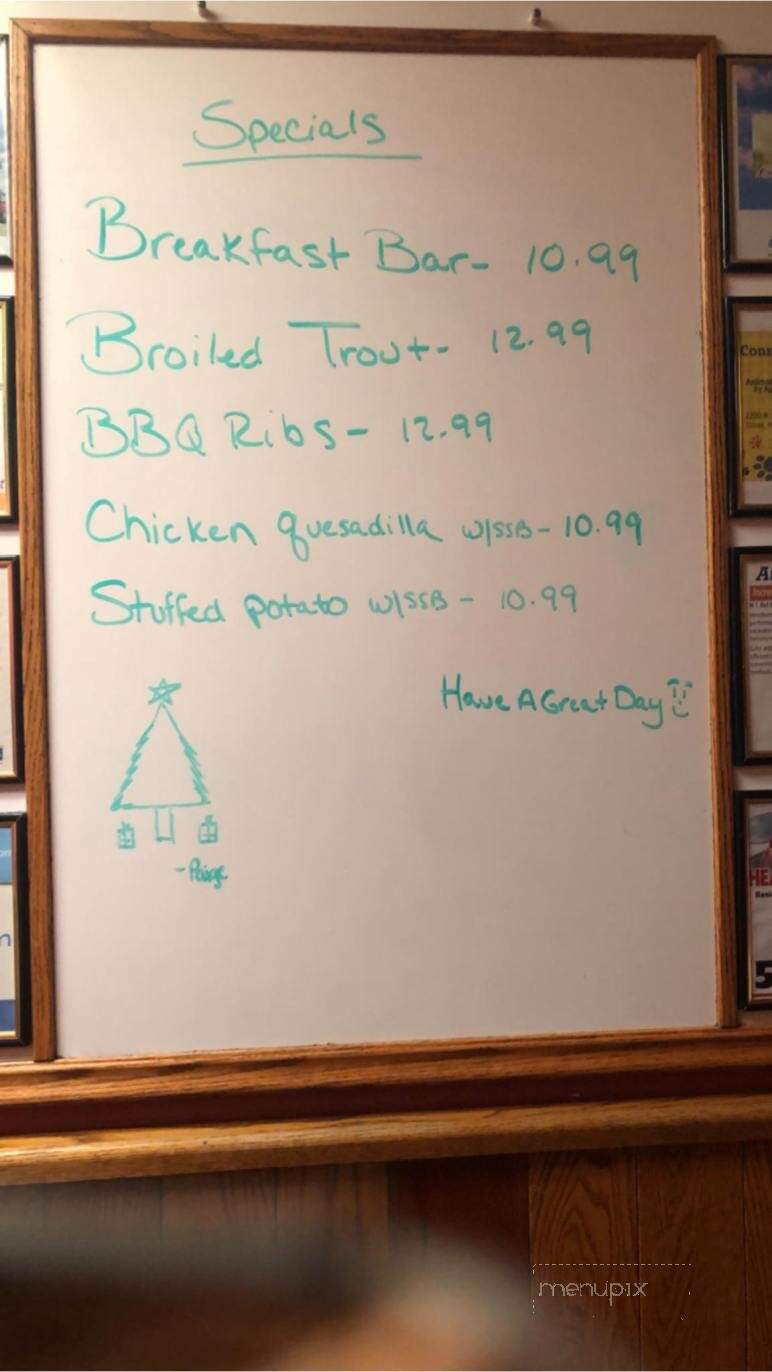 Specials
Breakfast Bar- 10.99
Broiled Trout- 12.99
BBQ Ribs- 12.99
Chicken quesadilla w/SSB- 10.99
Stuffed potato w/SSB - 10.99
Have A Great Day
-Paige
Conn
menupix